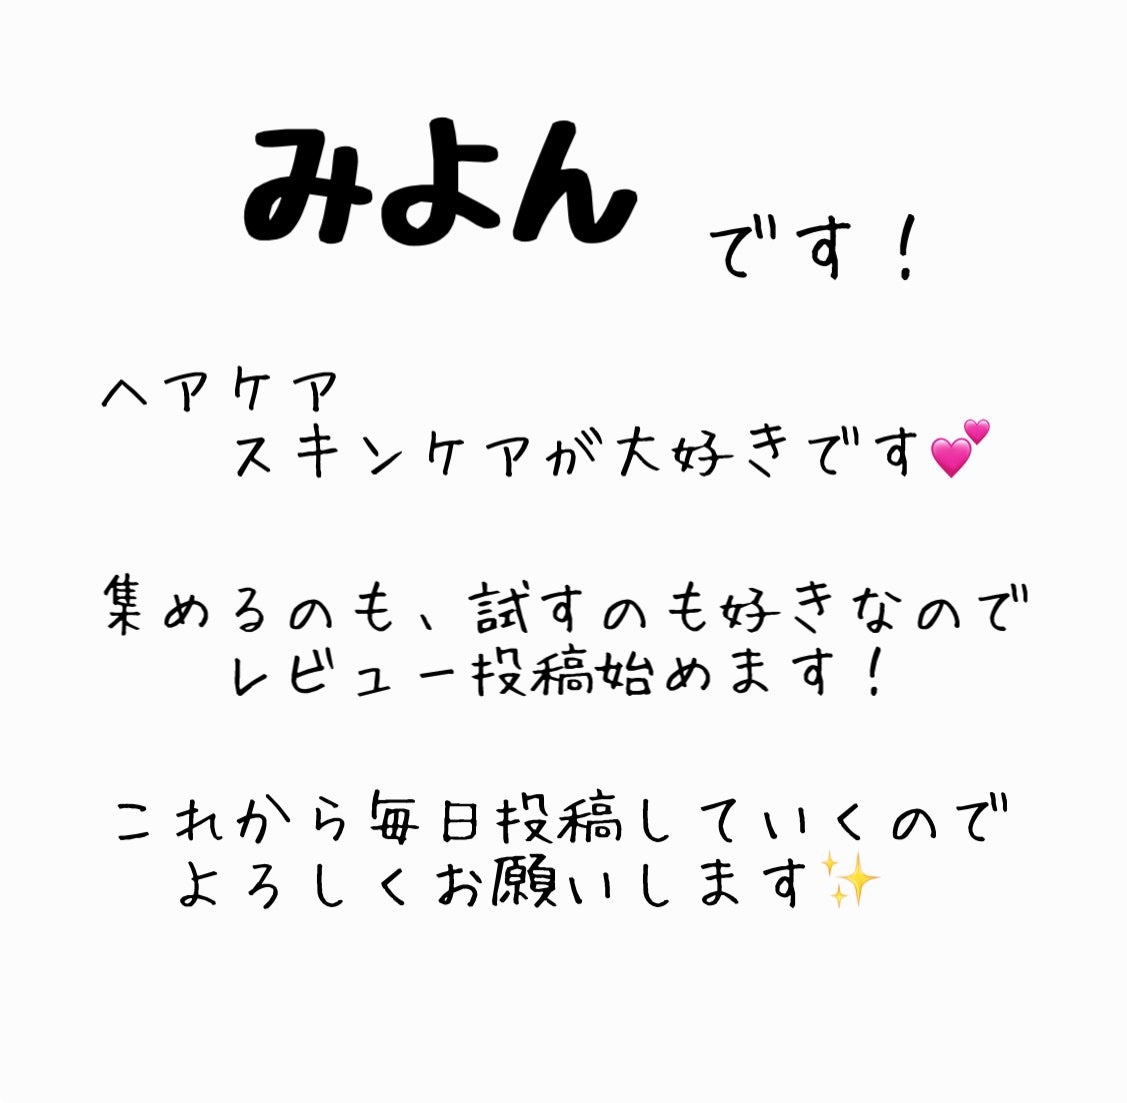 みよん です！
ヘアケア
スキンケアが大好きです💕
集めるのも、試すのも好きなので
レビュー投稿始めます！
これから毎日投稿していくので
よろしくお願いします✨